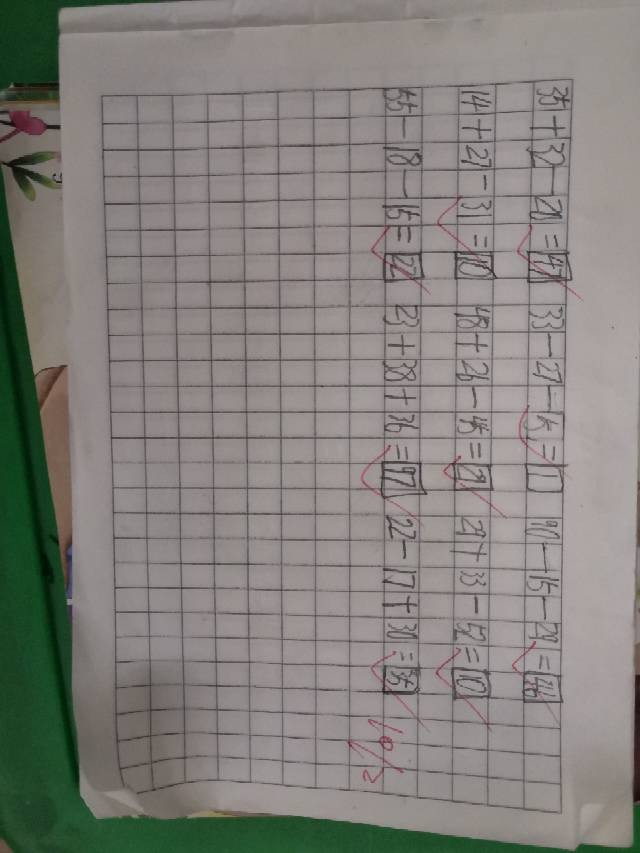 35+32-20=47 33-27-5=1 90-15-29=46
14+27-31=10 48+26-45=29 29+33-52=10
55-18-15=22 23+38+36=97 22-17+30=35